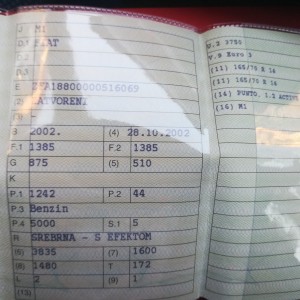 J M1
D.1 FIAT
D.2
D.3
E ZFA18800000516069
(2) ZATVORENI
B 2002. (4) 28.10.2002
F.1 1385 F.2 1385
G 875 (5) 510
K
P.1 1242 P.2 44
P.3 Benzin
P.4 5000 S.1 5
R SREBRNA - S EFEKTOM
(6) 3835 (7) 1600
(8) 1480 T 172
2 (9) 1
(13)
U.2 3750
V.9 Euro 3
(11) 165/70 R 14
(11) 165/70 R 14
(14) PUNTO, 1.2
(16) M1